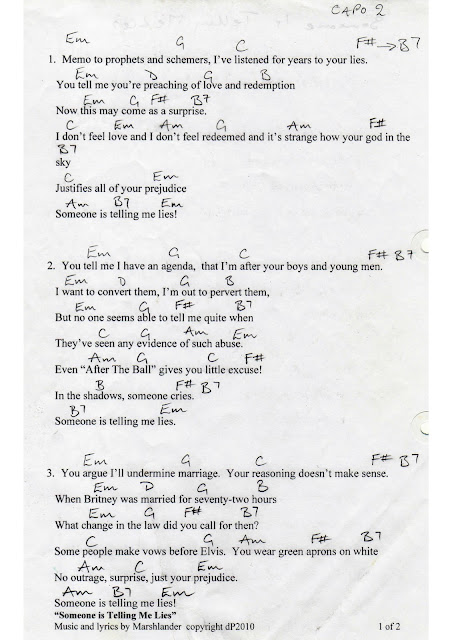 CAPO 2
Em G C F# → B7
1. Memo to prophets and schemers, I've listened for years to your lies.
Em D G B
You tell me you're preaching of love and redemption
Em G F# B7
Now this may come as a surprise.
C Em Am G Am F#
I don't feel love and I don't feel redeemed and it's strange how your god in the
B7
sky
C Em
Justifies all of your prejudice
Am B7 Em
Someone is telling me lies!
Em G C F# B7
2. You tell me I have an agenda, that I'm after your boys and young men.
Em D G B
I want to convert them, I'm out to pervert them,
Em G F# B7
But no one seems able to tell me quite when
C G Am Em
They've seen any evidence of such abuse.
Am G C F#
Even "After The Ball" gives you little excuse!
B F# B7
In the shadows, someone cries.
B7 Em
Someone is telling me lies.
Em G C F# B7
3. You argue I'll undermine marriage. Your reasoning doesn't make sense.
Em D G B
When Britney was married for seventy-two hours
Em G F# B7
What change in the law did you call for then?
C G Am F# B7
Some people make vows before Elvis. You wear green aprons on white
Am C Em
No outrage, surprise, just your prejudice.
Am B7 Em
Someone is telling me lies!
"Someone is Telling Me Lies"
Music and lyrics by Marshlander copyright dP2010 1 of 2